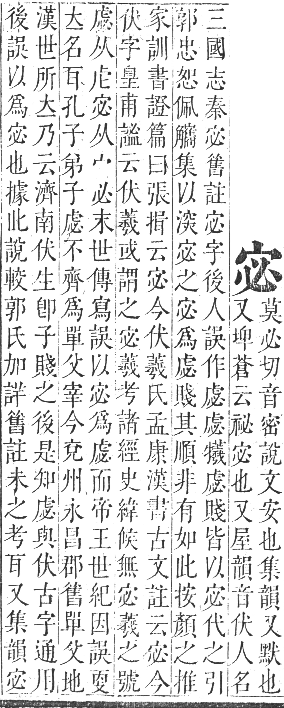 宓
莫必切音密說文安也集韻又默也
又埤蒼云祕宓也又屋韻音伏人名
三國志秦宓舊註宓字後人誤作虙虙犧虙賤皆以宓代之引
郭忠恕佩觿集以湥宓之宓爲虙賤其順非有如此按顏之推
家訓書證篇曰張揖云宓今伏羲氏孟康漢書古文註云宓今
伏字皇甫謐云伏羲或謂之宓羲考諸經史緯候無宓羲之號
虙从虍宓从宀必末世傳寫誤以宓爲虙而帝王世紀因誤更
立名耳孔子弟子虙不齊爲單父宰今兗州永昌郡舊單父地
漢世所立乃云濟南伏生卽子賤之後是知虙與伏古字通用
後誤以爲宓也據此說較郭氏加詳舊註未之考耳又集韻宓